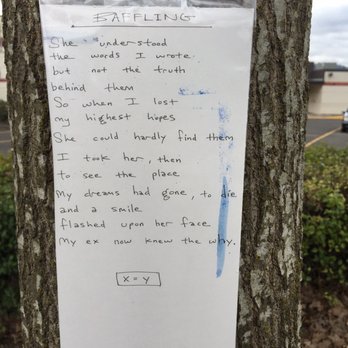 BAFFLING
She understood
the words I wrote
but not the truth
behind them
So when I lost
my highest hopes
She could hardly find them
I took her, then
to see the place
My dreams had gone, to die
and a smile
flashed upon her face
My ex now knew the why.
x = y